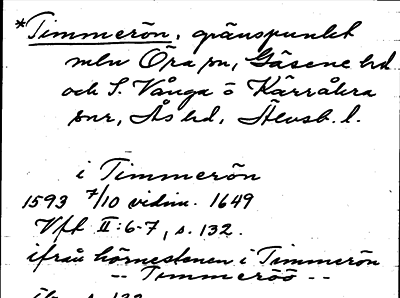 *Timmerön, gränspunkt
mln Öra sn, Gäsene hd
och S. Vånga o Kärråkra
snr, Ås hd, Älvsb. l.
i Timmerön
1593 7/10 vidim. 1649
Vft II:6-7, s. 132.
ifrån hörnestenen i Timmerön
-- Timmeröö --
s. 132